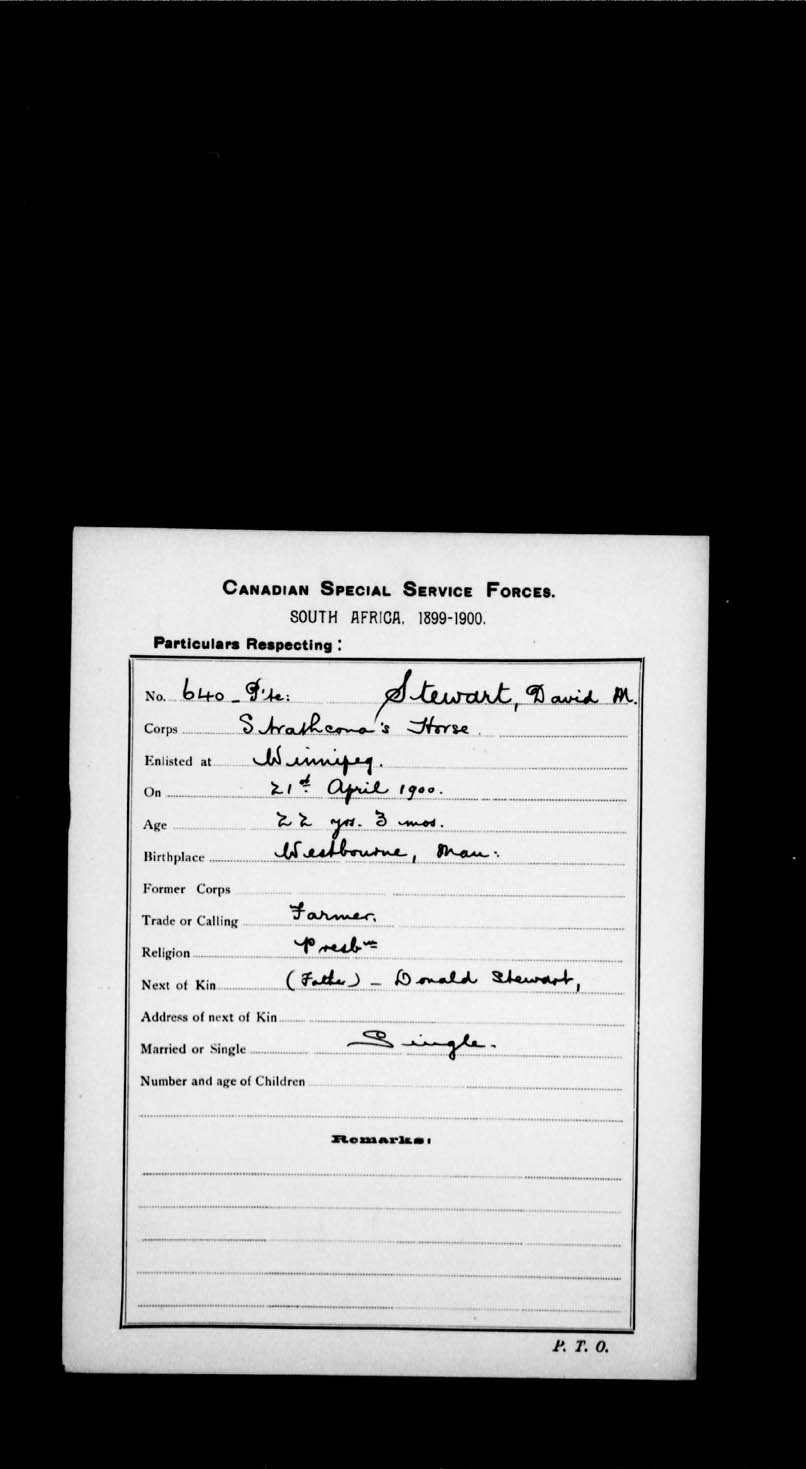 CANADIAN SPECIAL SERVICE FORCES.
SOUTH AFRICA, 1899-1900.
Particulars Respecting:
No. 640 - Pte: Stewart, David M.
Corps Strathcona's Horse
Enlisted at Winnipeg.
On 21st April 1900.
Age 22 yrs. 3 mos.
Birthplace Westbourne, Man:
Former Corps
Trade or Calling Farmer.
Religion Presbn
Next of Kin (Father) - Donald Stewart,
Address of next of Kin
Married or Single Single.
Number and age of Children
Remarks:
P. T. O.